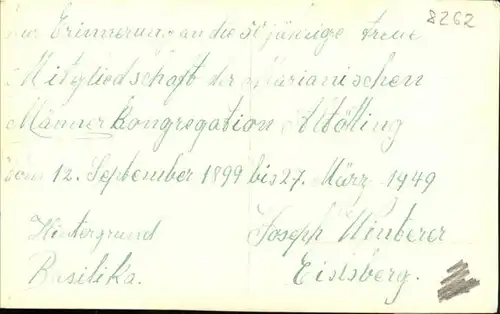 8262
Zur Erinnerung an die 50 jährige treue
Mitgliedschaft der Marianischen
Männerkongregation Altötting
vom 12. September 1899 bis 27. März 1949
Hintergrund Joseph Winterer
Basilika. Eidsberg.